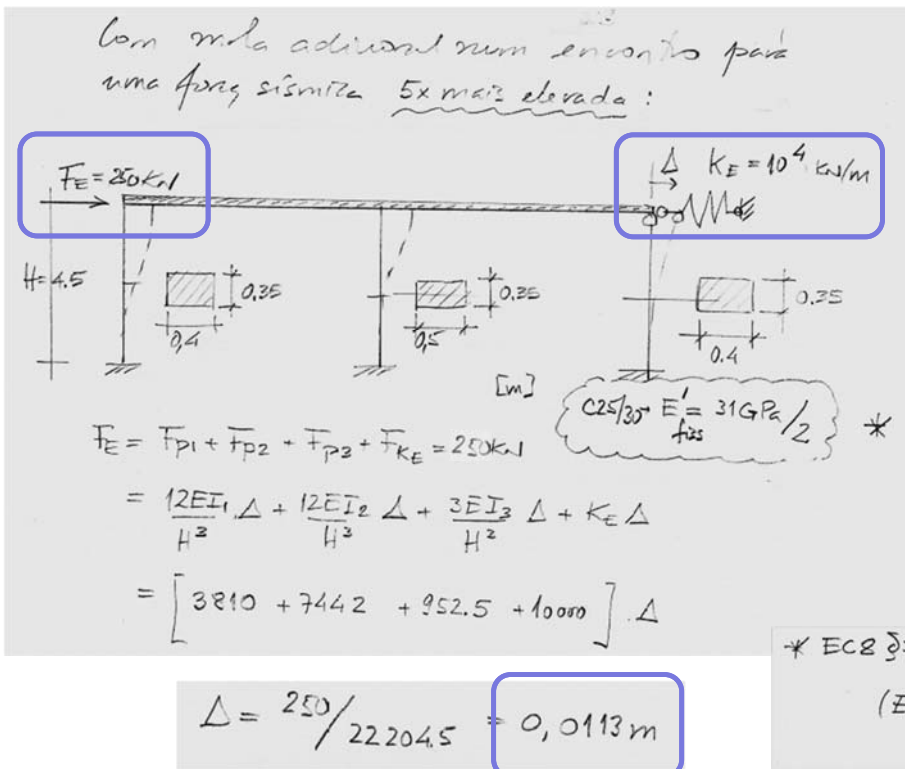 Com mola adicional num encontro para
uma força sísmica 5x mais elevada :
FE = 250 KN
Δ KE = 10⁴ KN/m
H = 4.5
0.35
0,4
0.35
0,5
0.35
0.4
[m]
C25/30 → E'fiss = 31 GPa/2 *
FE = Fp1 + Fp2 + Fp3 + FKE = 250 KN
= 12EI1/H³ . Δ + 12EI2/H³ Δ + 3EI3/H³ Δ + KE Δ
= [3810 + 7442 + 952.5 + 10000] . Δ
* EC8 §
(E
Δ = 250/22204.5 = 0,0113 m